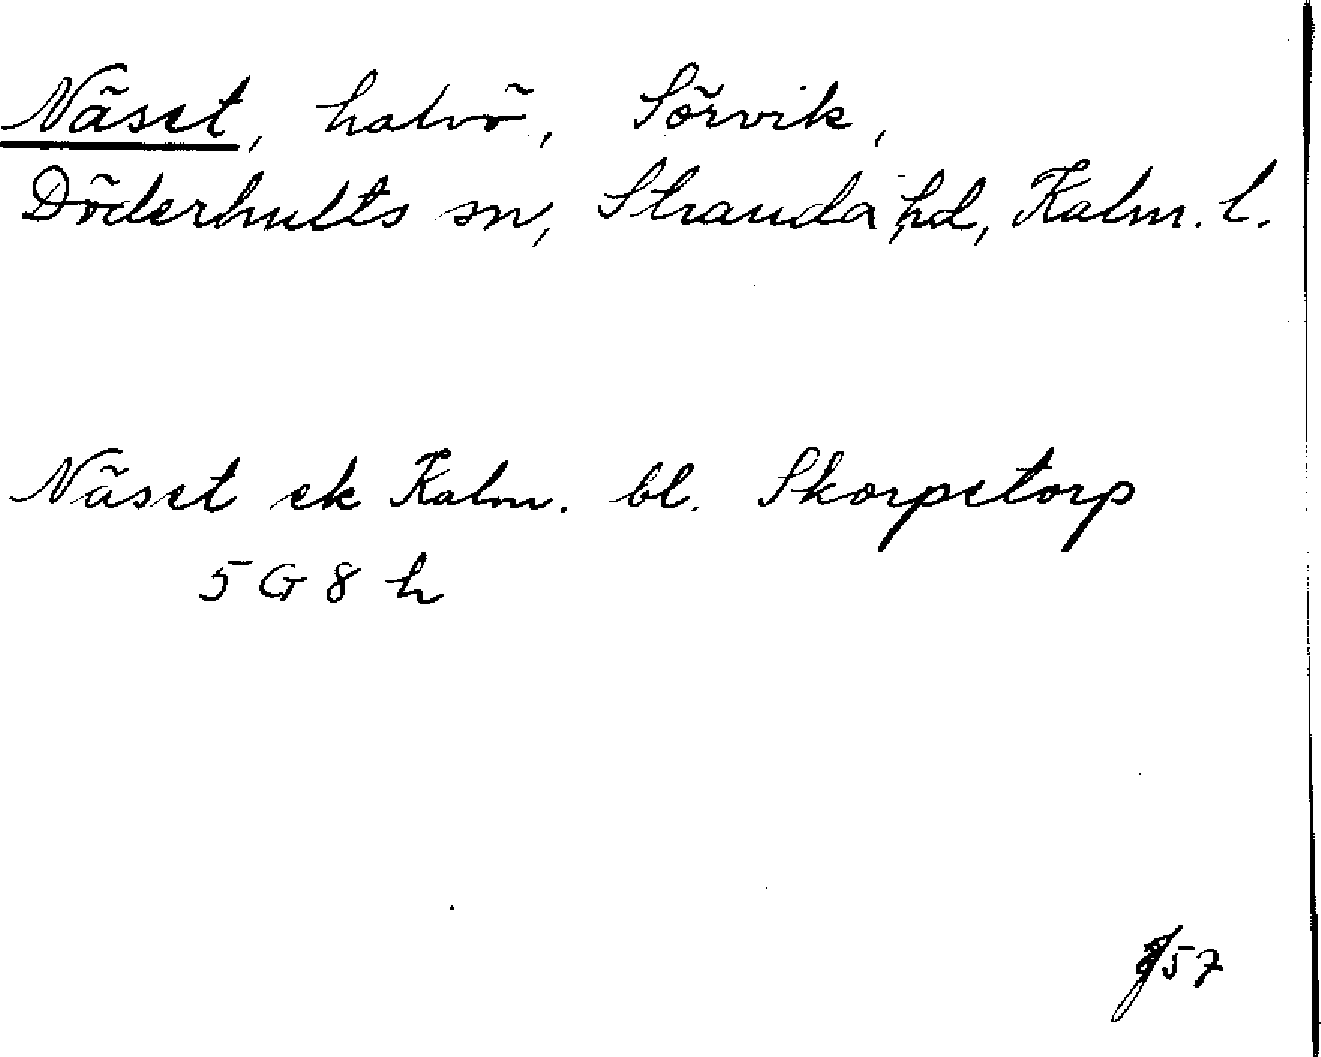 Näset, halvö, Sörvik,
Döderhults sn, Stranda hd, Kalm. l.
Näset ek Kalm. bl. Skorpetorp
5 G 8 h
57